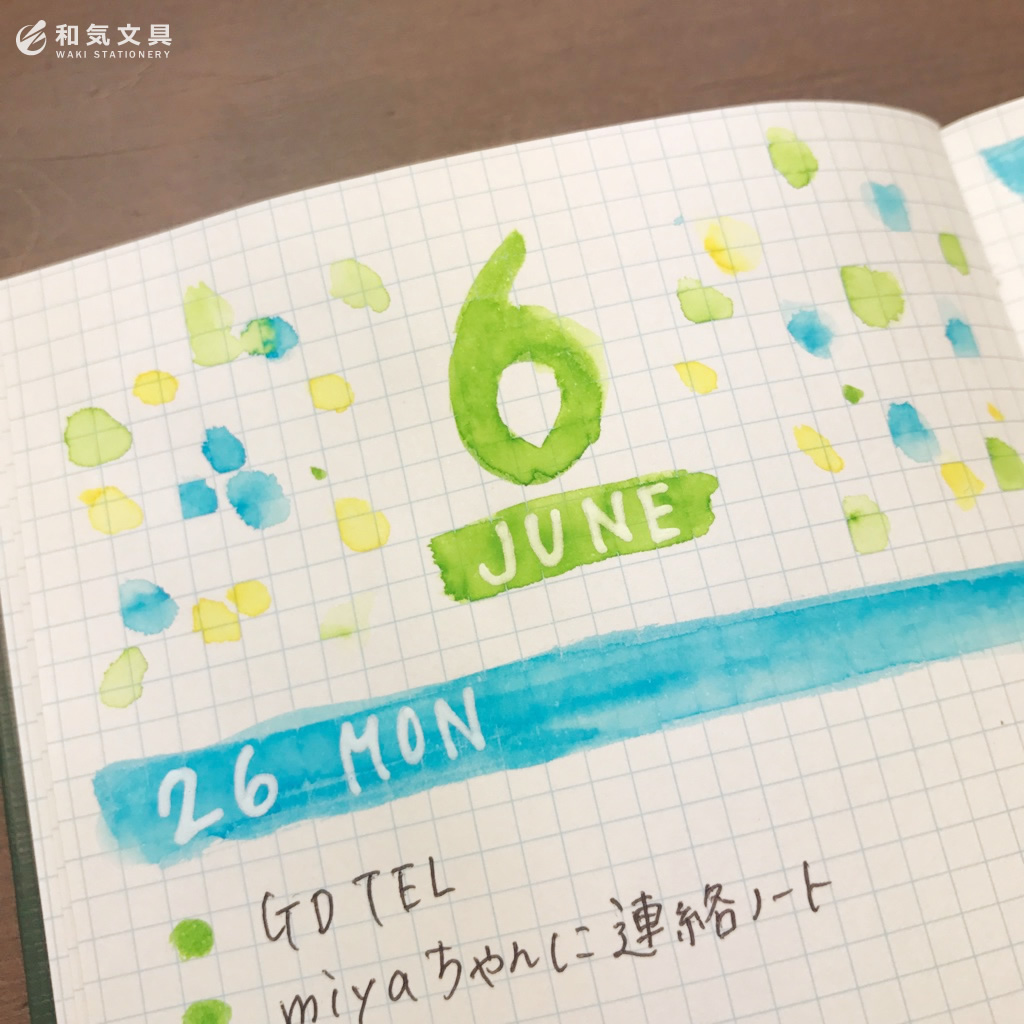 和気文具
WAKI STATIONERY
6
JUNE
26 MON
GD TEL
miyaちゃんに連絡ノート